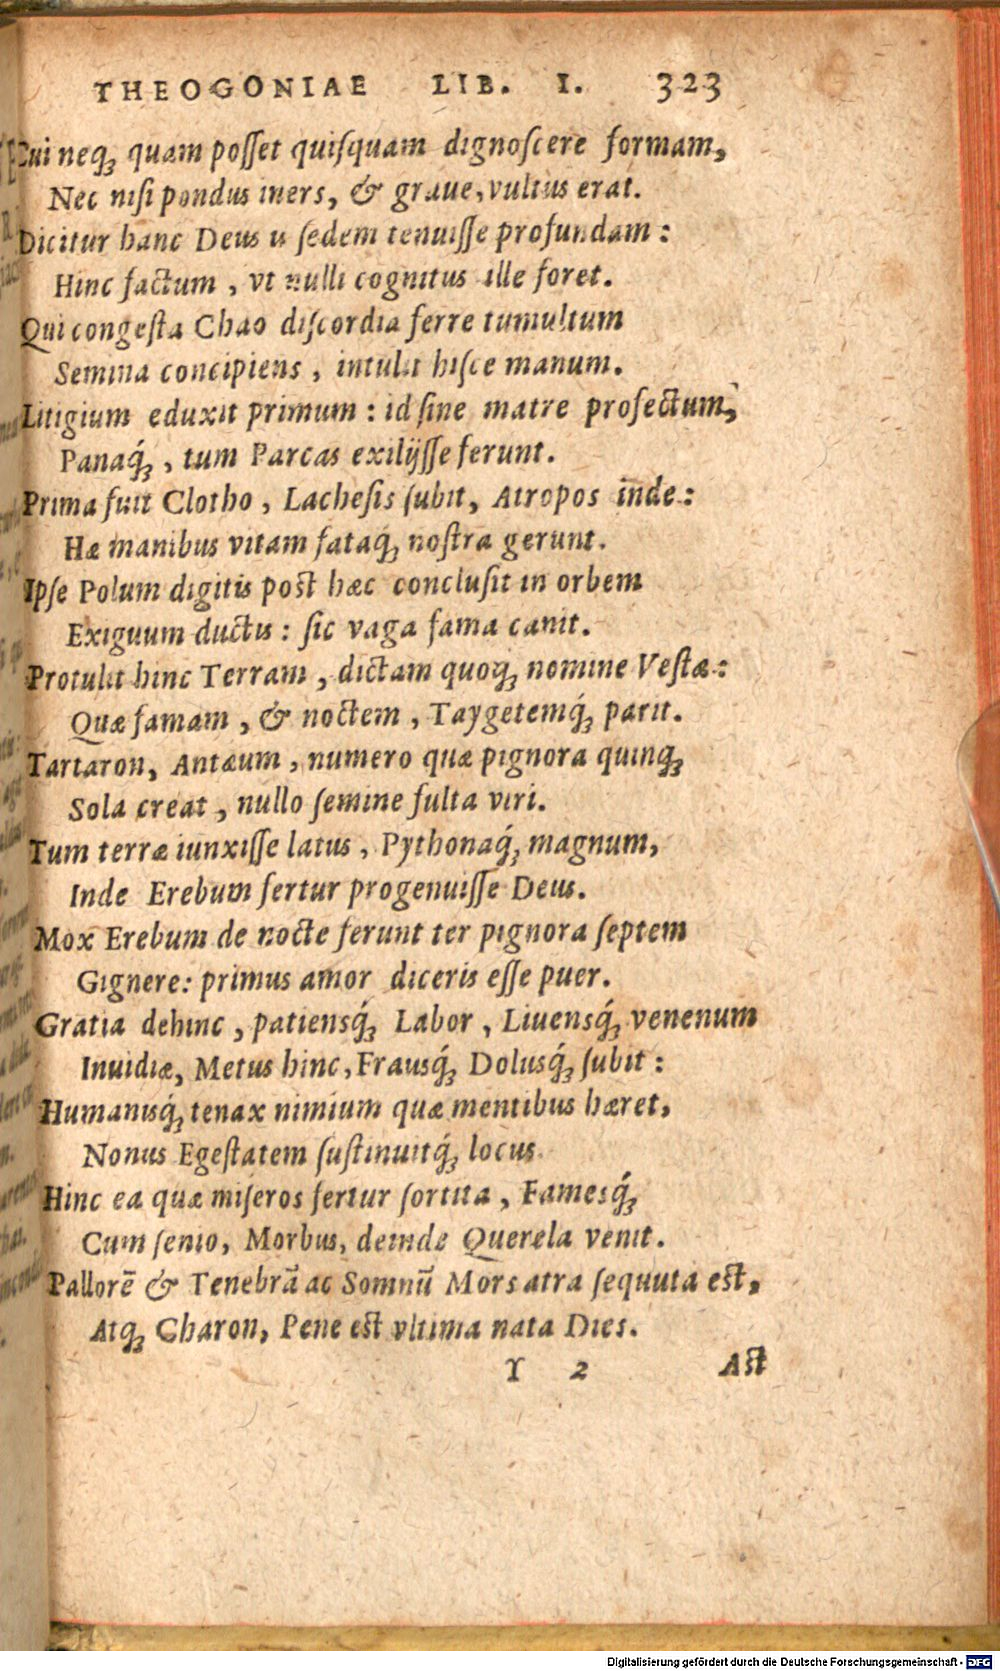 THEOGONIAE LIB. I. 323
Cui neq; quam posset quisquam dignoscere formam,
Nec nisi pondus iners, & graue, vultus erat.
Dicitur hanc Deus is sedem tenuisse profundam:
Hinc factum, vt nulli cognitus ille foret.
Qui congesta Chao discordia ferre tumultum
Semina concipiens, intulit hisce manum.
Litigium eduxit primum: id sine matre profectum,
Panaq́;, tum Parcas exilijsse ferunt.
Prima fuit Clotho, Lachesis subit, Atropos inde:
Hæ manibus vitam fataq́; nostra gerunt.
Ipse Polum digitis post hæc conclusit in orbem
Exiguum ductis: sic vaga fama canit.
Protulit hinc Terram, dictam quoq; nomine Vestæ:
Quæ famam, & noctem, Taygetemq́; parit.
Tartaron, Antæum, numero quæ pignora quinq;
Sola creat, nullo semine fulta viri.
Tum terræ iunxisse latus, Pythonaq́; magnum,
Inde Erebum fertur progenuisse Deus.
Mox Erebum de nocte ferunt ter pignora septem
Gignere: primus amor diceris esse puer.
Gratia dehinc, patiensq́; Labor, Liuensq́; venenum
Inuidiæ, Metus hinc, Frausq́; Dolusq́; subit:
Humanisq́; tenax nimium quæ mentibus hæret,
Nonus Egestatem sustinuitq́; locus.
Hinc ea quæ miseros fertur sortita, Famesq́;
Cum senio, Morbus, deinde Querela venit.
Pallorē & Tenebrā ac Somnū Mors atra sequuta est,
Atq; Charon, Pene est vltima nata Dies.
Y 2 Ast
Digitalisierung gefördert durch die Deutsche Forschungsgemeinschaft - DFG